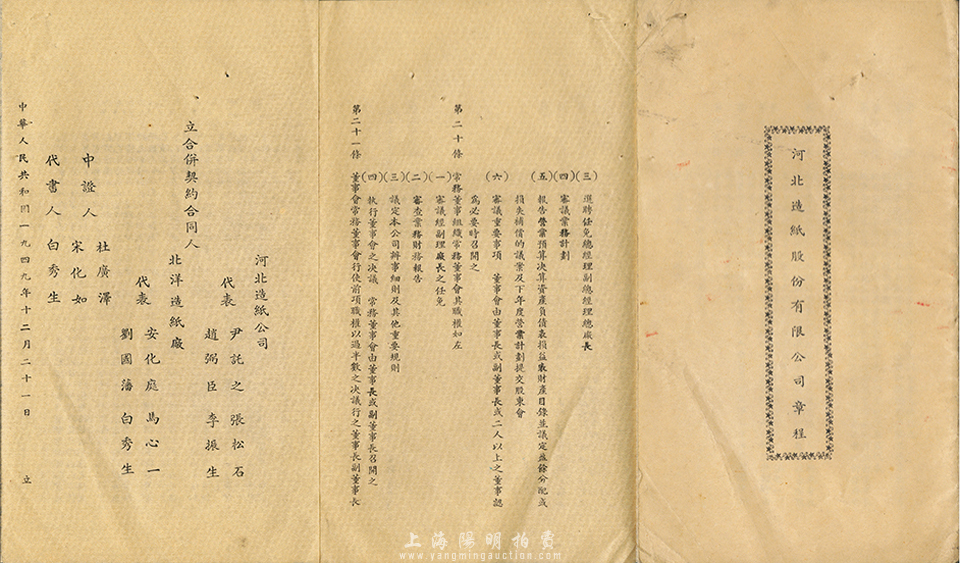 河北造紙股份有限公司章程
(三)選聘任免總經理副總經理總廠長
(四)審議業務計劃
(五)報告營業預算決算資產負債表損益表財產目錄並議定盈餘分配或
損失補償的議案及下年度營業計劃提交股東會
(六)審議重要事項 董事會由董事長或副董事長或二人以上之董事認
為必要時召開之
第二十條 常務董事組織常務董事會其職權如左
(一)審議經副理廠長之任免
(二)審查業務財務報告
(三)議定本公司辦事細則及其他重要規則
(四)執行董事會之决議 常務董事會由董事長或副董事長召開之
第二十一條 董事會常務董事會行使前項職權以過半數之决議行之董事長副董事長
立合併契約合同人
河北造紙公司
代表 尹託之 張松石
趙弼臣 李振生
北洋造紙廠
代表 安化庭 馬心一
劉國藩 白秀生
中證人 杜廣澤
宋化如
代書人 白秀生
中華人民共和囯一九四九年十二月二十一日 立
上海陽明拍賣
www.yangmingauction.com